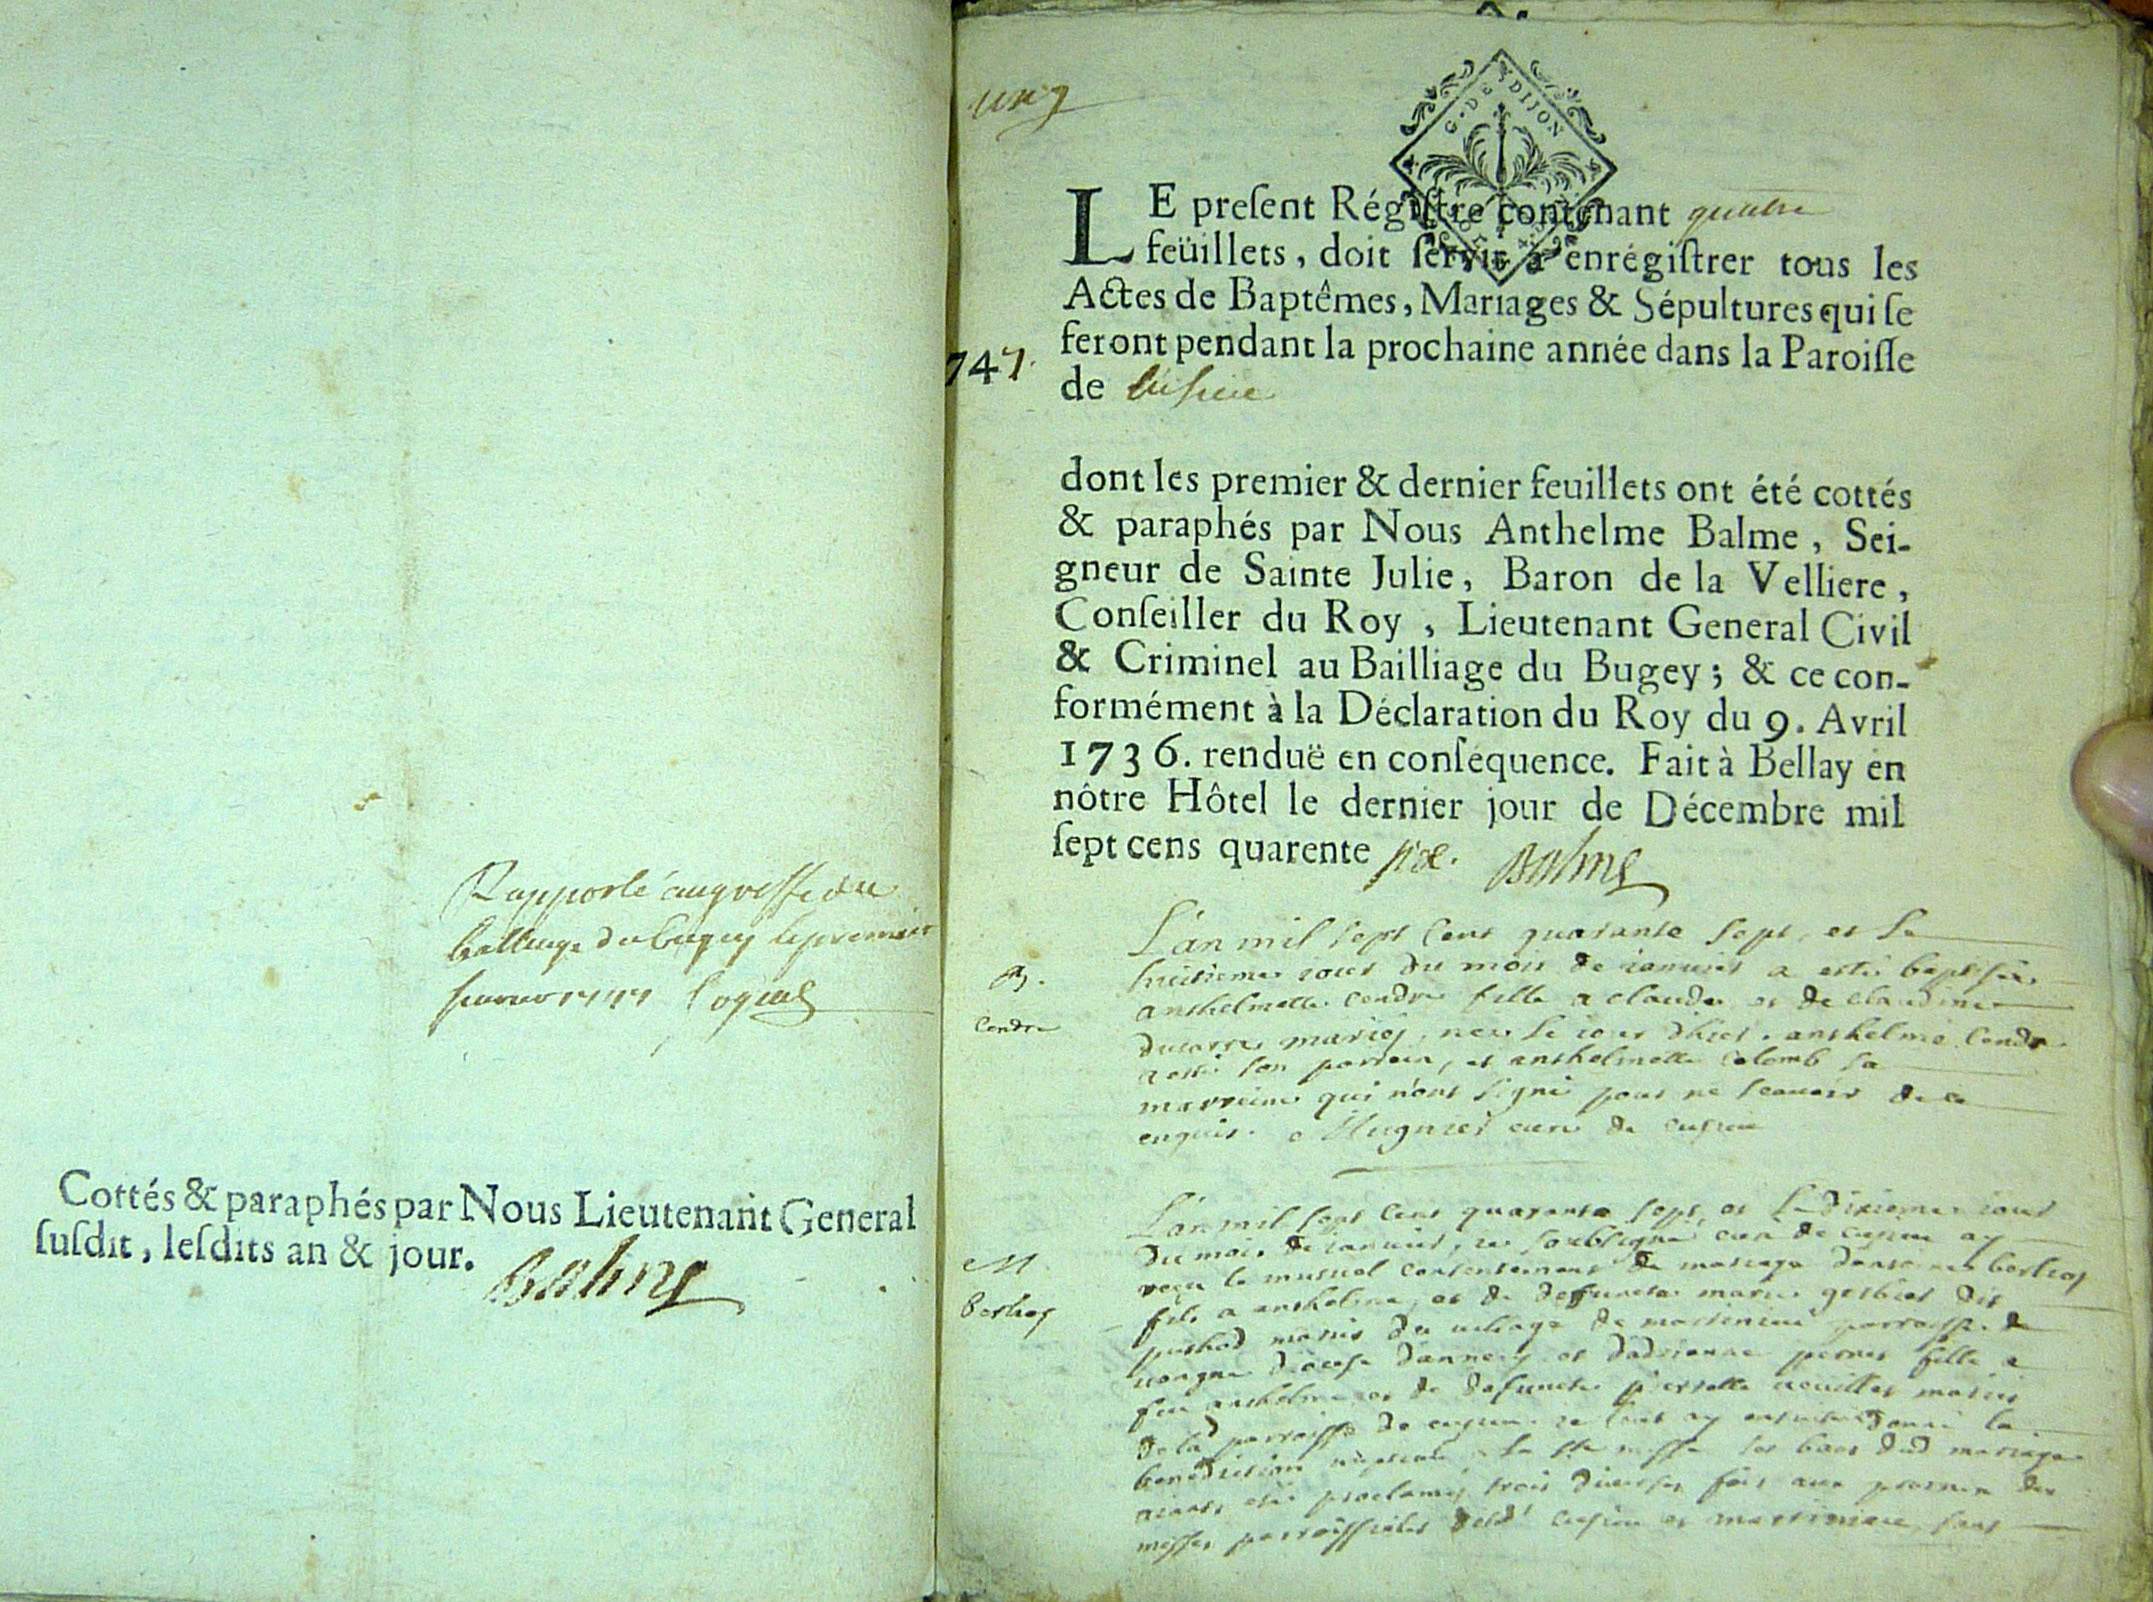 Rapporté au greffe du
balliage du bugey le premier
Cottés & paraphés par Nous Lieutenant General
suſdit, leſdits an & jour.
Balme
G. DE DIJON
LE preſent Régiſtre contenant quatre
feüillets, doit ſervir à enrégiſtrer tous les
Actes de Baptêmes, Mariages & Sépultures qui ſe
feront pendant la prochaine année dans la Paroiſſe
747.
de
dont les premier & dernier feuillets ont été cottés
& paraphés par Nous Anthelme Balme, Sei-
gneur de Sainte Julie, Baron de la Velliere,
Conſeiller du Roy, Lieutenant General Civil
& Criminel au Bailliage du Bugey; & ce con-
formément à la Déclaration du Roy du 9. Avril
1736. renduë en conſéquence. Fait à Bellay en
nôtre Hôtel le dernier jour de Décembre mil
ſept cens quarente six. Balme
L'an mil sept cent quarante sept, et le
B. huitieme iour du mois de ianvier a esté baptisée
Cendre anthelmette Cendre fille a claude et de claudine
mariés, née le iour d'hier. anthelme Cendre
a esté son parrein, et anthelmette colomb sa
marreine qui n'ont signé pour ne scavoir de ce
enquis. Mugnier curé de cuzieu
L'an mil sept cent quarante sept, et le dixieme iour
M. du mois de ianvier, ie soubsigné curé de cuzieu ay
receu le mutuel consentement de mariage
berthet
fils a anthelme, et de defuncte marie dit
mariés du village de parroisse de
diocese d'annecy et fille a
feu anthelme et de defuncte mariés
de la parroisse de cuzieu ie leur ay ensuitte donné la
benediction a la ste messe les bans dud mariage
ayants esté proclamés trois diverses fois aux prosnes des
messes parroissiales cuzieu et sans